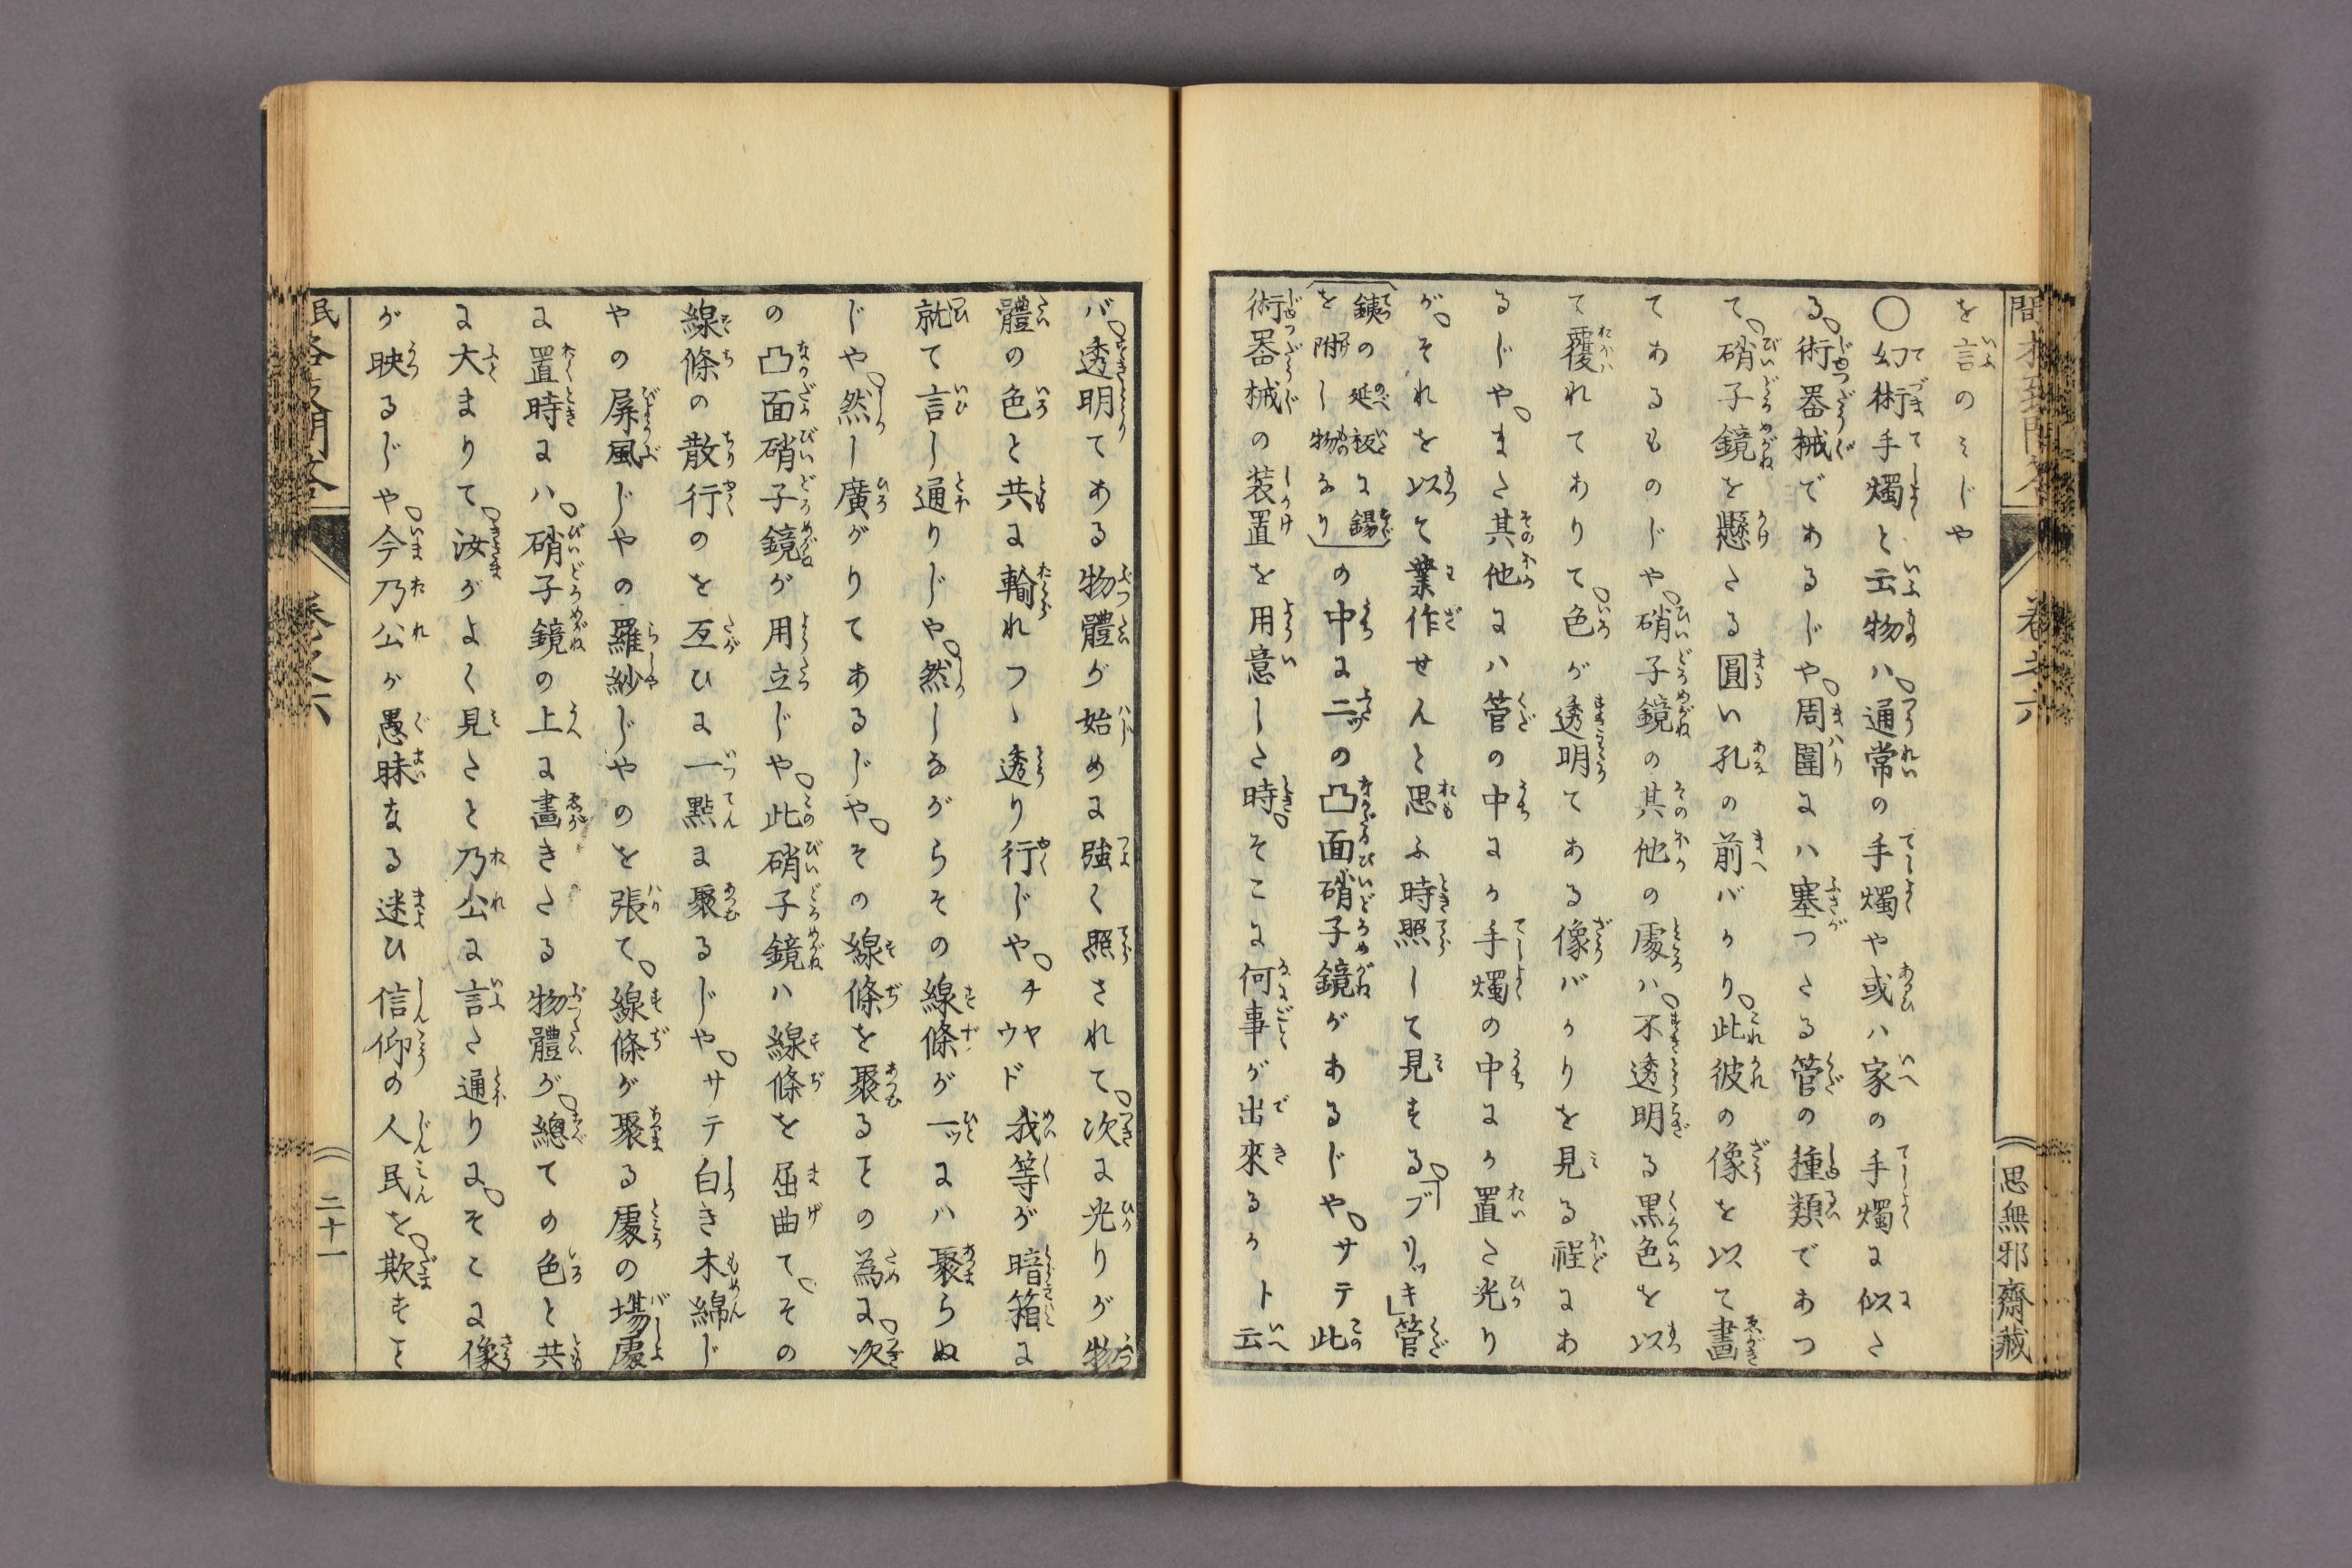 を言のミじや
〇幻術手燭と云物ハ。通常の手燭や或ハ家の手燭に似た
る。術器械であるじや。周圍にハ塞つたる管の種類であつ
て。硝子鏡を懸たる圓い孔の前バかり。此彼の像を以て畫
てあるものじや。硝子鏡の其他の處ハ。不透明る黒色を以
て覆れてありて。色が透明てある像バかりを見る程にあ
るじや。また其他にハ管の中にか手燭の中にか置た光り
が。それを以て業作せんと思ふ時照して見する。「ブリッキ」管
(銕の延板に錫を附し物なり)の中に二ツの凸面硝子鏡があるじや。サテ此
術器械の装置を用意した時。そこに何事が出來るかト云
バ。透明てある物體が始めに強く照されて。次に光りが物
體の色と共に輸れつゝ透り行じや。チヤウド我等が暗箱に
就て言し通りじや。然しながらその線條が一ッにハ聚らぬ
じや。然し廣がりてあるじや。その線條を聚るヿの為に。次
の凸面硝子鏡が用立じや。此硝子鏡ハ線條を屈曲て。その
線條の散行のを互ひに一點に聚るじや。サテ白き木綿じ
やの屏風じやの羅紗じやのを張て。線條が聚る處の場處
に置時にハ。硝子鏡の上に畫きたる物體が。總ての色と共
に大まりて。汝がよく見たと乃公に言た通りに。そこに像
が映るじや。今乃公が愚昧なる迷ひ信仰の人民を。欺すヿ
巻之六
思無邪齋蔵
二十一